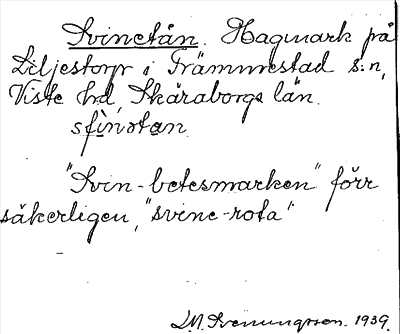 Svinetån. Hagmark på
Liljestorp i Främmestad s:n,
Viste hd, Skaraborgs län.
sfìnətan
"Svin-betesmarken" förr
säkerligen, "svine-rota"
M. Svenungsson. 1939.